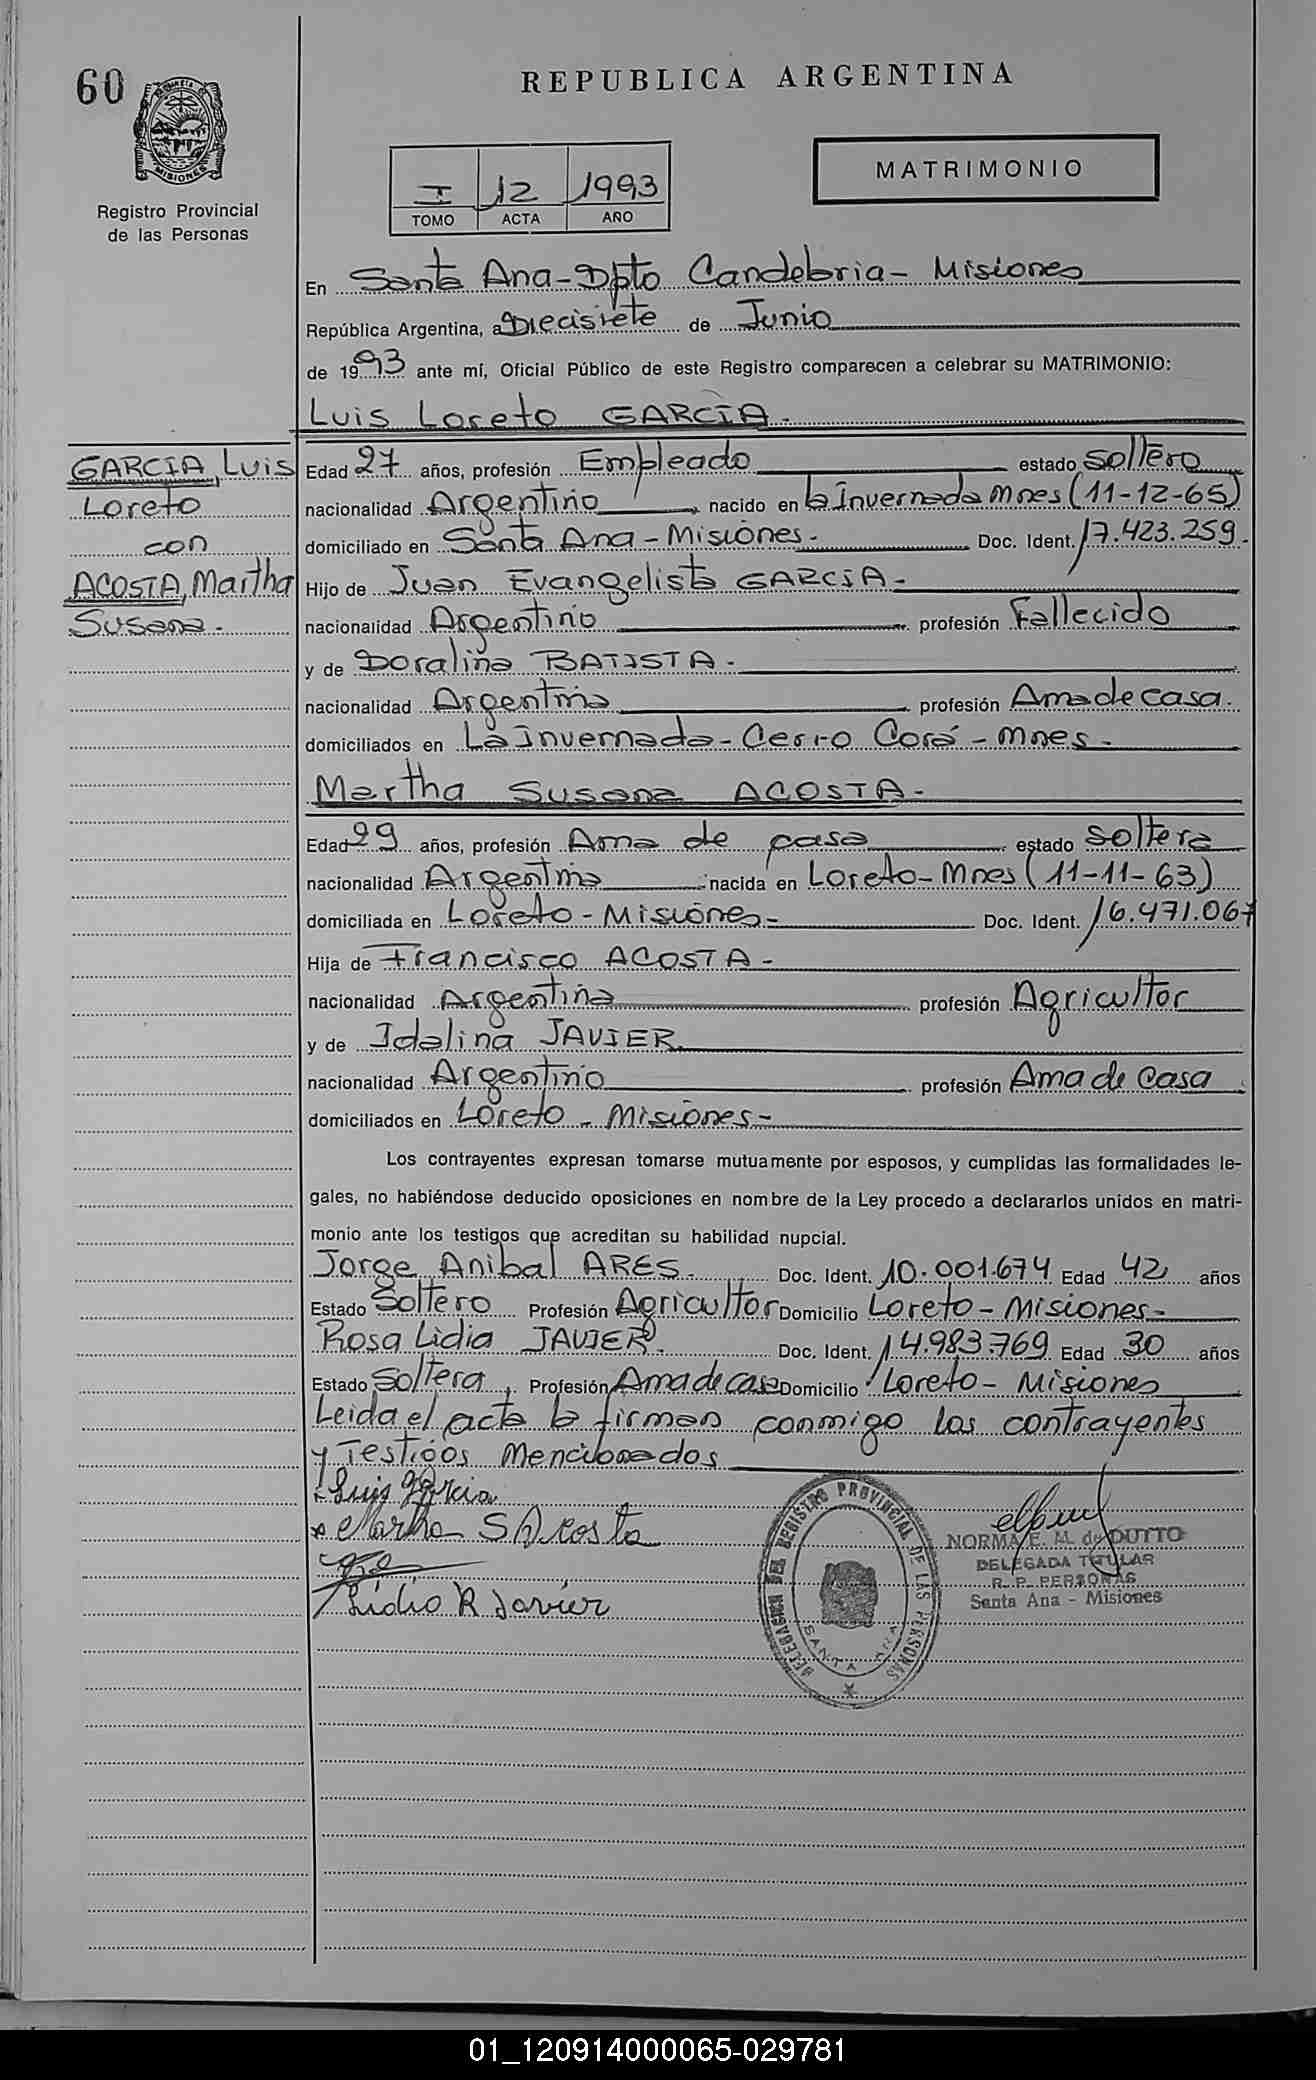 60
REPUBLICA ARGENTINA
MISIONES
Registro Provincial
de las Personas
I 12 1993
TOMO ACTA AÑO
MATRIMONIO
En Santa Ana-Dpto Candelaria- Misiones
República Argentina, a Diecisiete de Junio
de 1993 ante mí, Oficial Público de este Registro comparecen a celebrar su MATRIMONIO:
Luis Loreto GARCIA.
GARCIA, Luis
Loreto
con
ACOSTA, Martha
Susana.
Edad 27 años, profesión Empleado estado soltero
nacionalidad Argentino, nacido en la Invernada Mnes (11-12-65)
domiciliado en Santa Ana - Misiones. Doc. Ident. 17.423.259.
Hijo de Juan Evangelista GARCIA.
nacionalidad Argentino profesión Fallecido
y de Doralina BATISTA.
nacionalidad Argentina profesión Ama de casa.
domiciliados en La Invernada - Cerro Corá - Mnes.
Martha Susana ACOSTA.
Edad 29 años, profesión Ama de casa estado soltera
nacionalidad Argentina nacida en Loreto- Mnes (11-11-63)
domiciliada en Loreto - Misiones- Doc. Ident. 16.471.067
Hija de Francisco ACOSTA -
nacionalidad Argentina profesión Agricultor
y de Idalina JAVIER.
nacionalidad Argentino profesión Ama de Casa
domiciliados en Loreto - Misiones-
Los contrayentes expresan tomarse mutuamente por esposos, y cumplidas las formalidades le-
gales, no habiéndose deducido oposiciones en nombre de la Ley procedo a declararlos unidos en matri-
monio ante los testigos que acreditan su habilidad nupcial.
Jorge Anibal ARES. Doc. Ident. 10.001.674 Edad 42 años
Estado Soltero Profesión Agricultor Domicilio Loreto - Misiones-
Rosa Lidia JAVIER. Doc. Ident. 14.983.769 Edad 30 años
Estado Soltera, Profesión Ama de casa Domicilio Loreto - Misiones
Leida el acta la firman conmigo los contrayentes
y Testigos Mencionados
Luis Garcia
Martha S Acosta
Lidia R Javier
DELEGACION DEL REGISTRO PROVINCIAL DE LAS PERSONAS
SANTA ANA
NORMA E. M. de DUTTO
DELEGADA TITULAR
R. P. PERSONAS
Santa Ana - Misiones
01_120914000065-029781